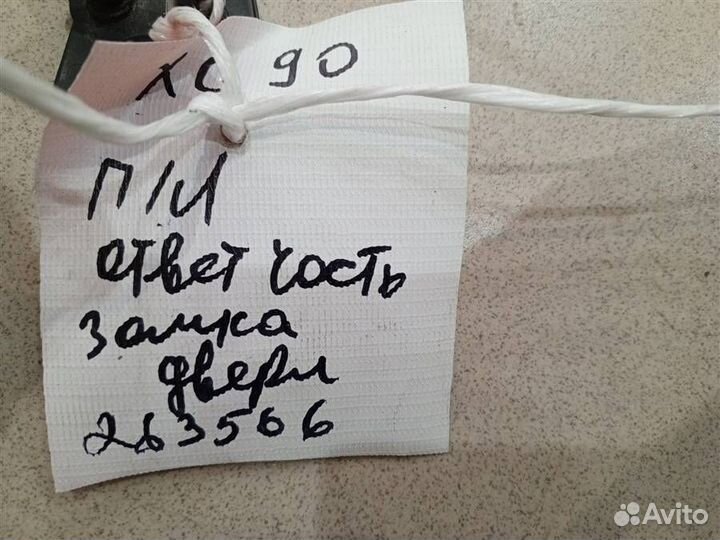 XC 90
П/Л
ответ часть
замка
двери
263506
Avito